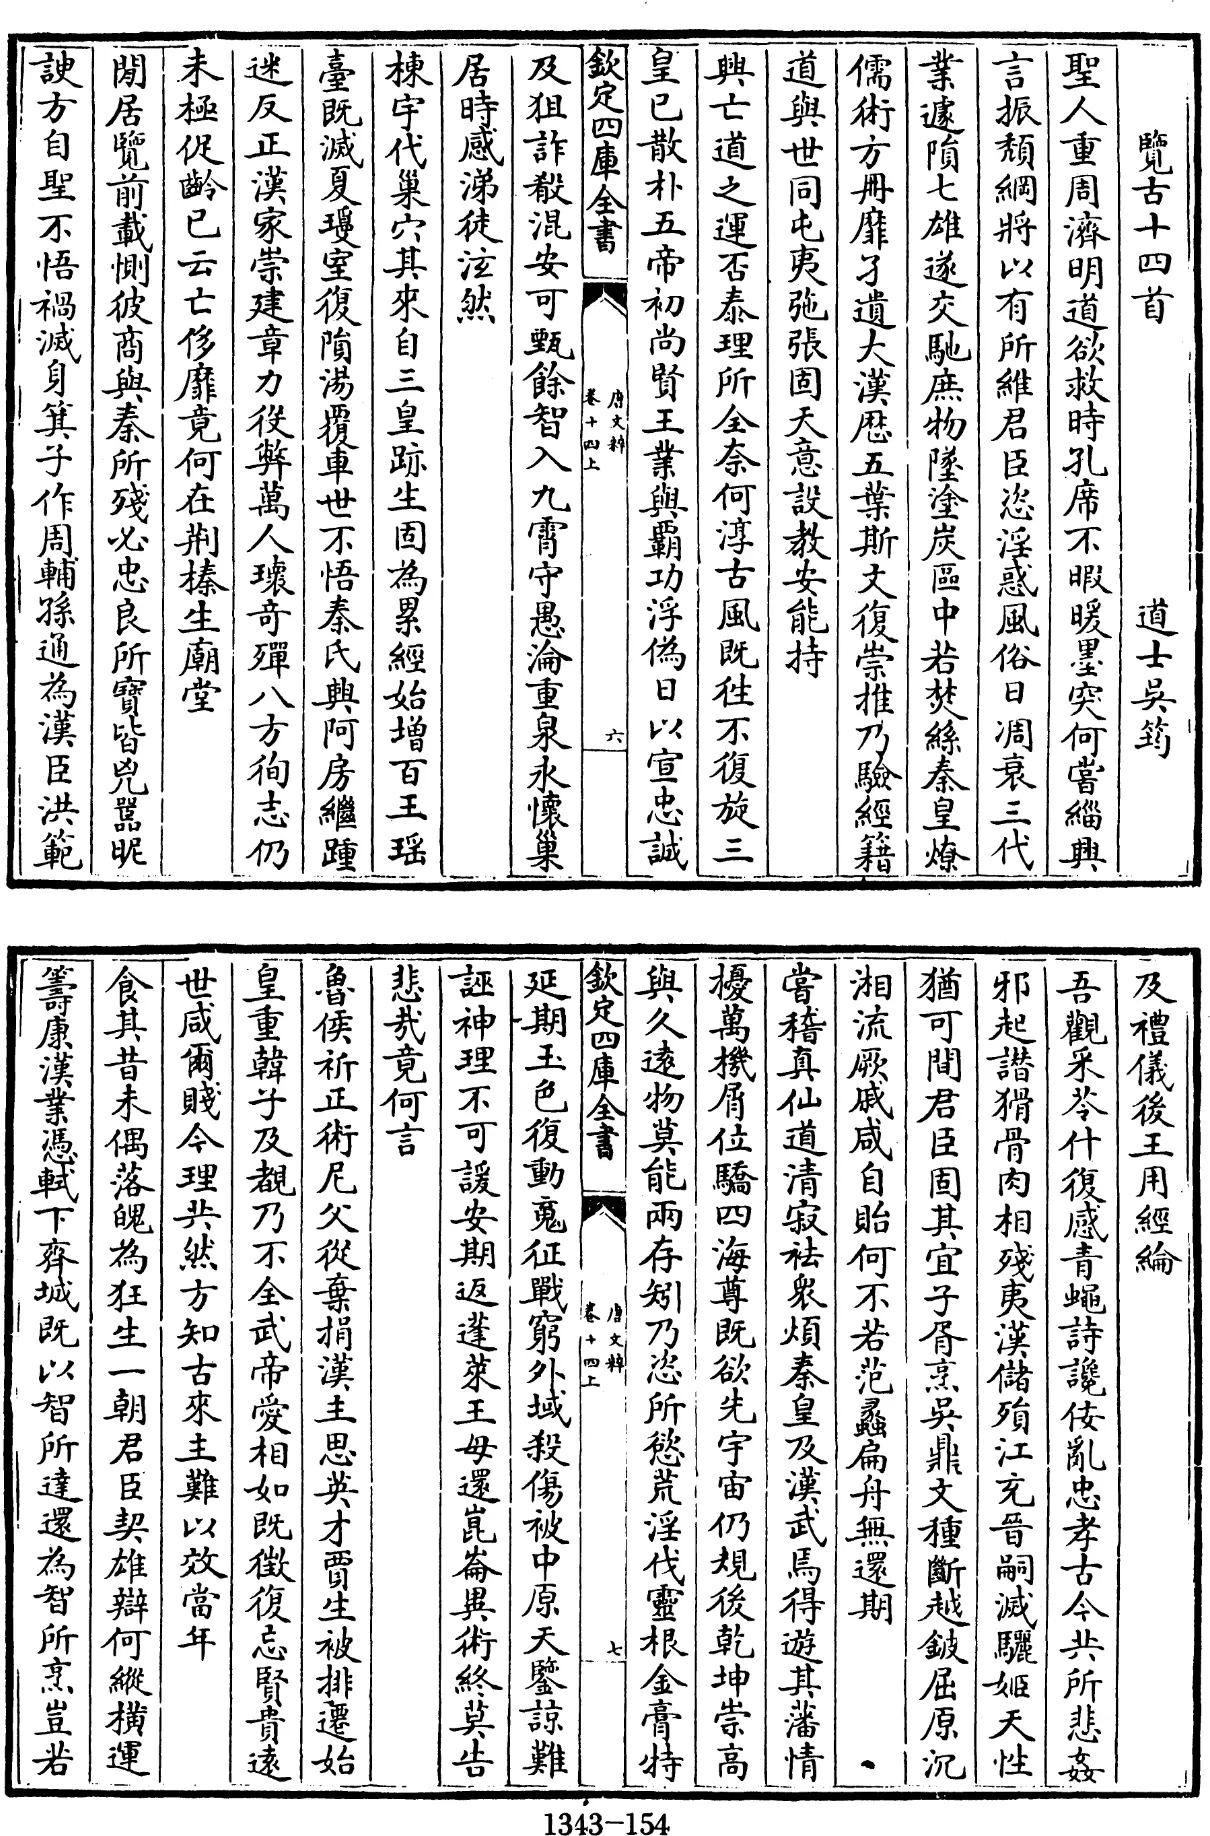 覽古十四首 道士吳筠
聖人重周濟明道欲救時孔席不暇暖墨突何嘗緇興
言振頽綱將以有所維君臣恣淫惑風俗日凋衰三代
業遽隕七雄遂交馳庶物墜塗炭區中若焚絲秦皇燎
儒術方冊靡孑遺大漢歴五葉斯文復崇推乃驗經籍
道與世同屯夷弛張固天意設教安能持
興亡道之運否泰理所全奈何淳古風既往不復旋三
皇已散朴五帝初尚賢王業與霸功浮偽日以宣忠誠
欽定四庫全書
唐文粹
卷十四上
六
及狙詐殽混安可甄餘智入九霄守愚淪重泉永懷巢
居時感涕徒泫然
棟宇代巢穴其來自三皇跡生固為累經始增百王瑶
臺既滅夏瓊室復隕湯覆車世不悟秦氏興阿房繼踵
迷反正漢家崇建章力役弊萬人瓌奇殫八方徇志仍
未極促齡已云亡侈靡竟何在荆榛生廟堂
閒居覽前載惻彼商與秦所殘必忠良所寶皆兇嚚昵
諛方自聖不悟禍滅身箕子作周輔孫通為漢臣洪範
及禮儀後王用經綸
吾觀采苓什復感青蠅詩讒佞亂忠孝古今共所悲姦
邪起譖猾骨肉相殘夷漢儲殞江充晉嗣滅驪姬天性
猶可間君臣固其宜子胥烹吳鼎文種斷越鈹屈原沉
湘流厥戚咸自貽何不若范蠡扁舟無還期
嘗稽真仙道清寂祛衆煩秦皇及漢武焉得遊其藩情
擾萬機屑位驕四海尊既欲先宇宙仍規後乾坤崇高
與久遠物莫能兩存矧乃恣所慾荒淫伐靈根金膏特
欽定四庫全書
唐文粹
卷十四上
七
延期玉色復動䰟征戰窮外域殺傷被中原天鑒諒難
誣神理不可諼安期返蓬萊王母還崑崙異術終莫告
悲哉竟何言
魯侯祈正術尼父從棄捐漢主思英才賈生被排遷始
皇重韓子及覩乃不全武帝愛相如既徵復忘賢貴遠
世咸爾賤今理共然方知古來主難以效當年
食其昔未偶落魄為狂生一朝君臣契雄辯何縱横運
籌康漢業憑軾下齊城既以智所達還為智所烹豈若
1343-154